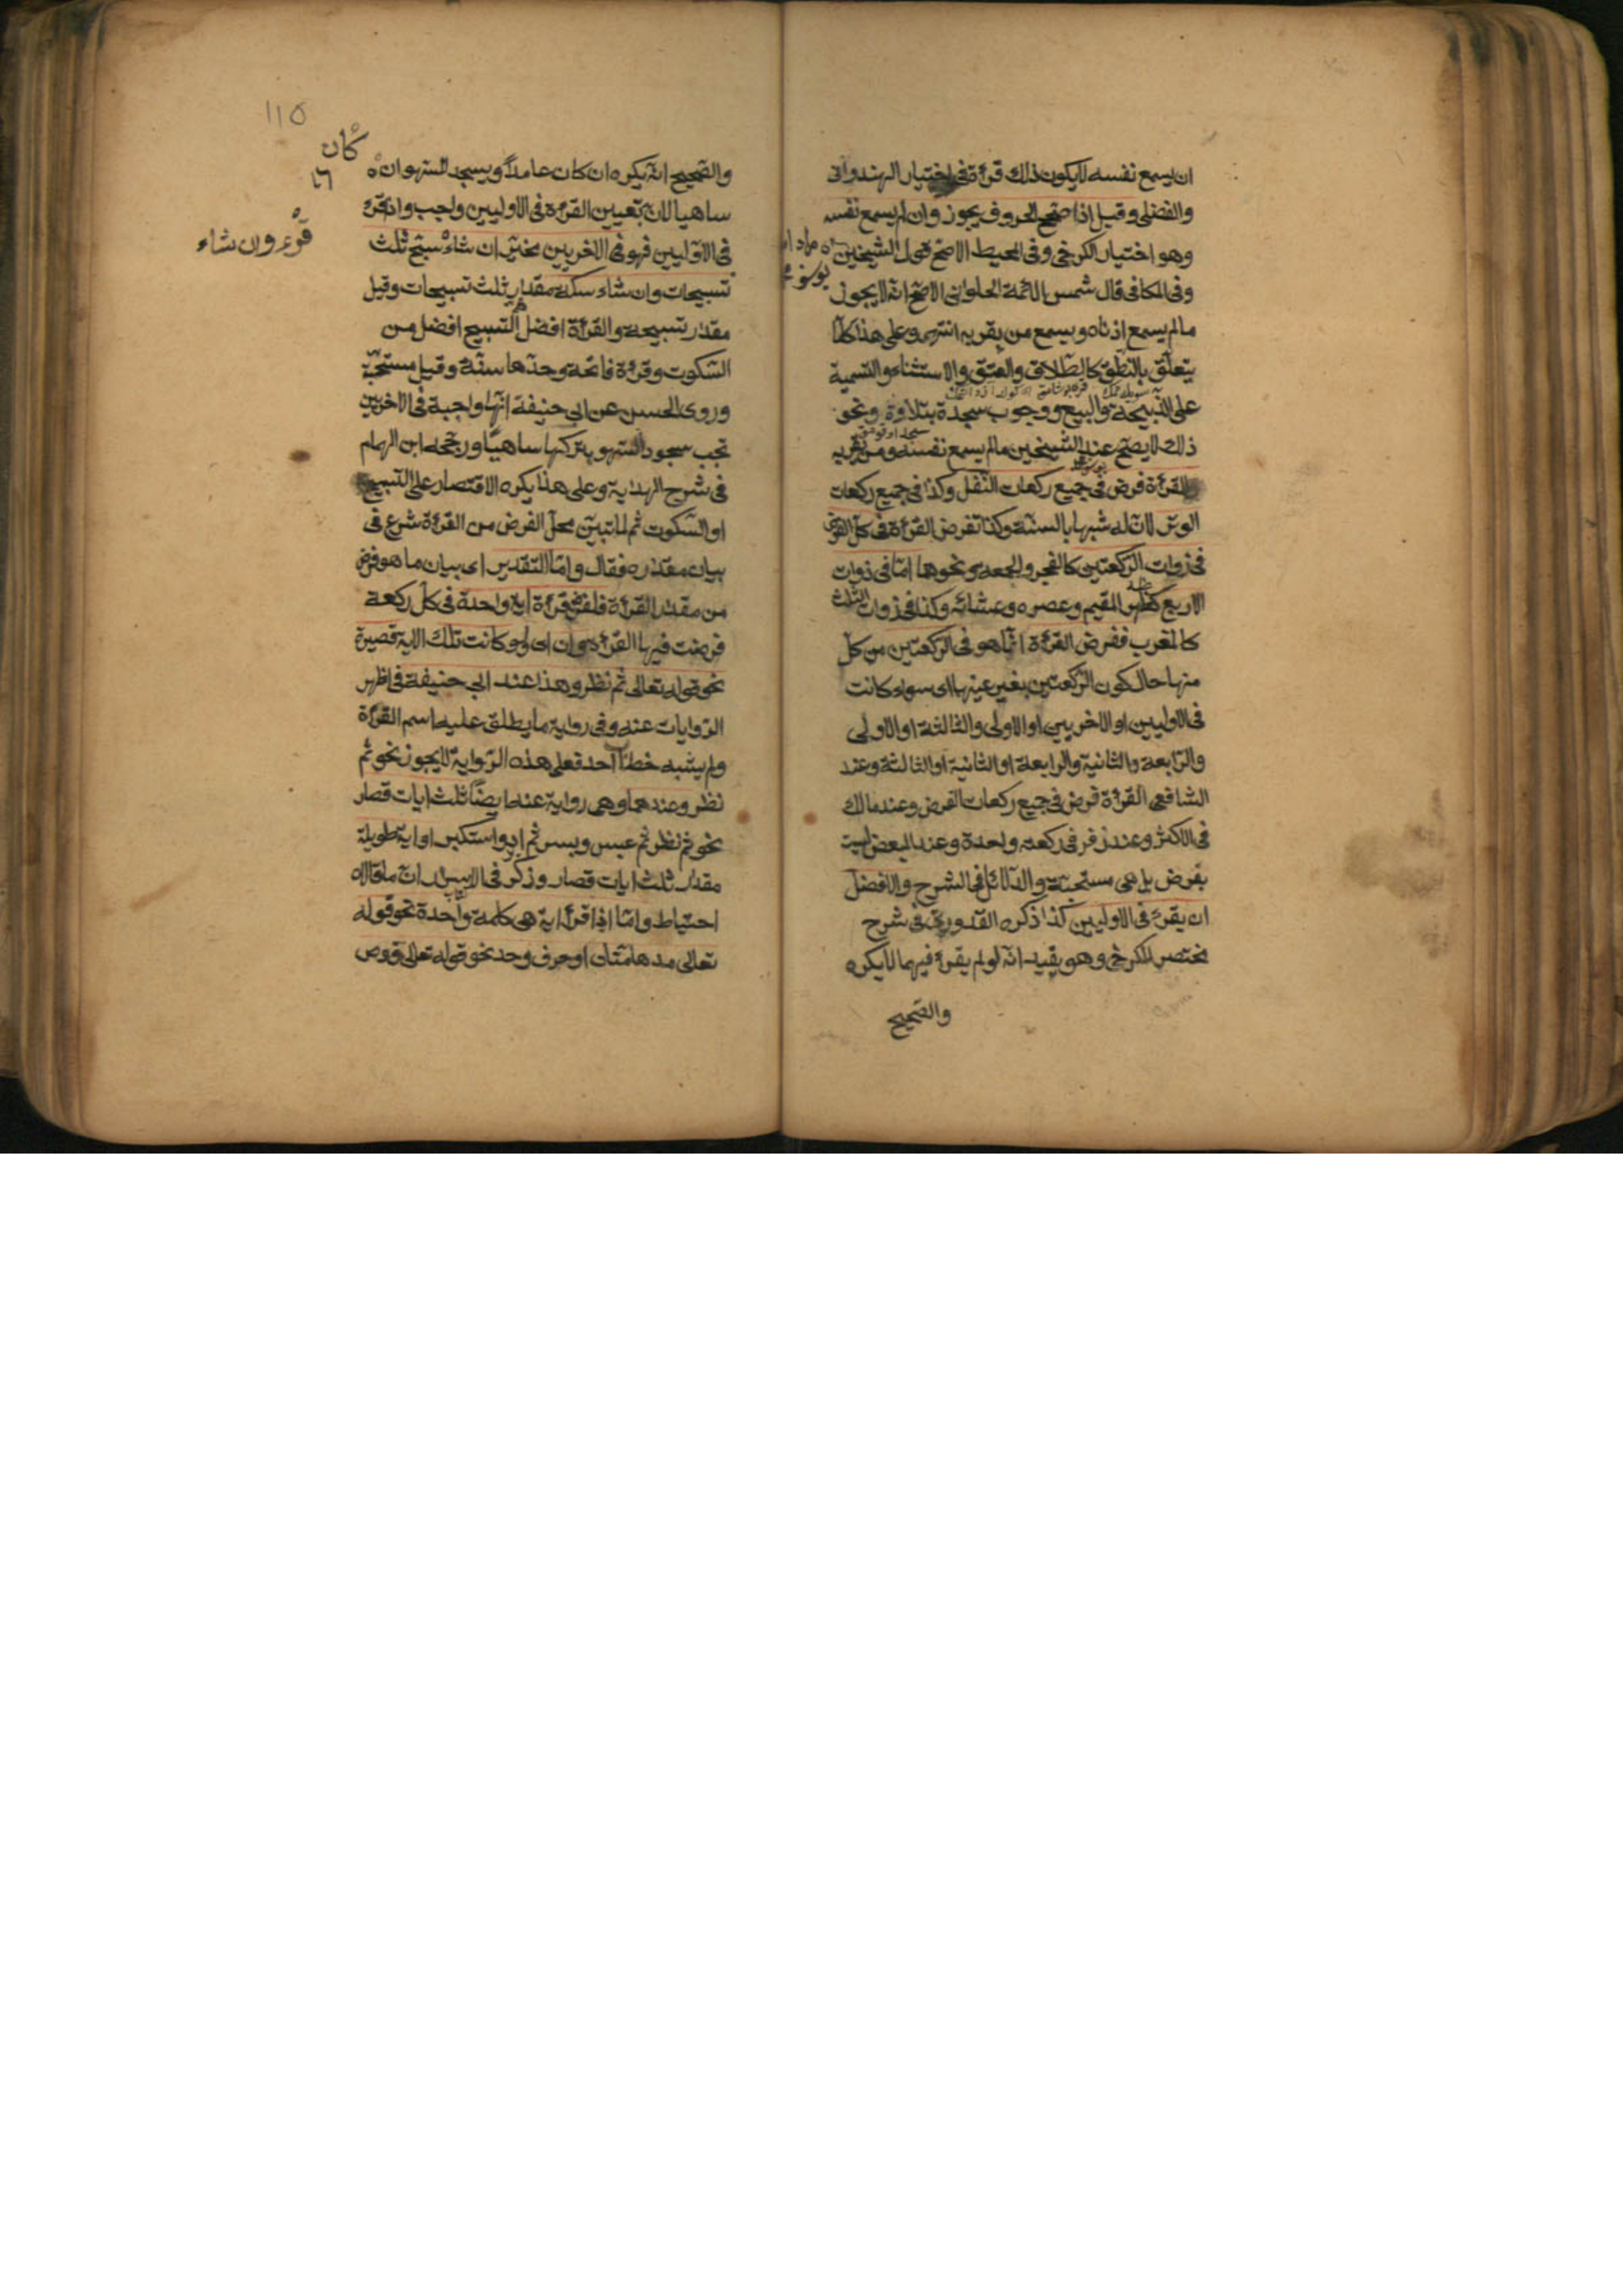 ان يسمع نفسه لا يكون ذلك قرءة فى اختيار الهندوانى
والفضلى وقيل اذا صحح الحروف يجوز وان لم يسمع نفسه
وهو اختيار الكرخى وفى المحيط الاصح قول الشيخين
وفى الكافى قال شمس الائمة الحلوانى الاصح انه لا يجوز
مالم يسمع اذناه ويسمع من بقربه انتهى وعلى هذا كلما
يتعلّق بالنطق كالطّلاق والعتق والاستثناء والتسمية
على الذّبيحة والبيع ووجوب سجدة بتلاوة ونحو
ذلك لا يصحّ عند الشيخين مالم يسمع نفسه ومن بقربه
والقرءة فرض فى جميع ركعات النّفل وكذا فى جميع ركعات
الوتر لانّ له شبها بالسنّة وكذا تفرض القرءة فى كلّ الفرض
فى ذوات الرّكعتين كالفجر والجمعة ونحوها امّا فى ذوات
الاربع كظهر المقيم وعصره وعشائه وكذا فى ذوات الثلاث
كالمغرب ففرض القرءة انّما هو فى الركعتين من كلّ
منها حال كون الرّكعتين بغير عينها اى سواء كانت
فى الاوليين او الاخريين او الاولى والثالثة او الاولى
والرّابعة والثانية والرابعة او الثانية او الثالثة وعند
الشافعى القرءة فرض فى جميع ركعات الفرض وعند مالك
فى الاكثر وعند زفر فى ركعة واحدة وعند البعض ليست
بفرض بل هى مستحبّة والدّلائل فى الشرح والافضل
ان يقرء فى الاوليين كذا ذكره القدورىّ فى شرح
مختصر الكرخى وهو يفيد انّه لو لم يقرء فيهما لا يكره
والصّحيح
115
كان
والصّحيح انّه يكره ان كان عامداً ويسجد للسّهو ان
ساهيا لانّ تعيين القرءة فى الاوليين واجب وان قرء
قرء وان شاء
فى الاوّليين فهو فى الاخريين مخيّر ان شاء سبّح ثلث
تسبيحات وان شاء سكت مقدار ثلث تسبيحات وقيل
مقدار تسبيحة والقرءة افضل ثم التسبيح افضل من
السّكوت وقرءة فاتحة وحدّها سنّة وقيل مستحبّة
وروى الحسن عن ابى حنيفة انّها واجبة فى الاخريين
تجب سجود السّهو بتركها ساهيًا ورجّحه ابن الهمام
فى شرح الهداية وعلى هذا يكره الاقتصار على التّسبيح
او السّكوت ثم لما تبيّن محلّ الفرض من القرءة شرع فى
بيان مقداره فقال وامّا التقدير اى بيان ما هو فرض
من مقدار القرءة فلفرض قرءة اية واحدة فى كلّ ركعة
فرضت فيها القرءة وان اى ولو كانت تلك الاية قصيرة
نحو قوله تعالى ثم نظر وهذا عند ابى حنيفة فى اظهر
الرّوايات عنه وفى رواية ما يطلق عليه اسم القرءة
ولم يشبه خطاب احد فعلى هذه الرّواية لا يجوز نحو ثم
نظر وعندهما وهى رواية عنه ايضًا ثلث ايات قصار
نحو ثم نظر ثم عبس وبسر ثم ادبر واستكبر او اية طويلة
مقدار ثلث ايات قصار وذكر فى الاسرار انّ ما قالاه
احتياط وامّا اذا قرء اية هى كلمة واحدة نحو قوله
تعالى مدهامّتان او حرف وحد نحو قوله تعالى ق وص